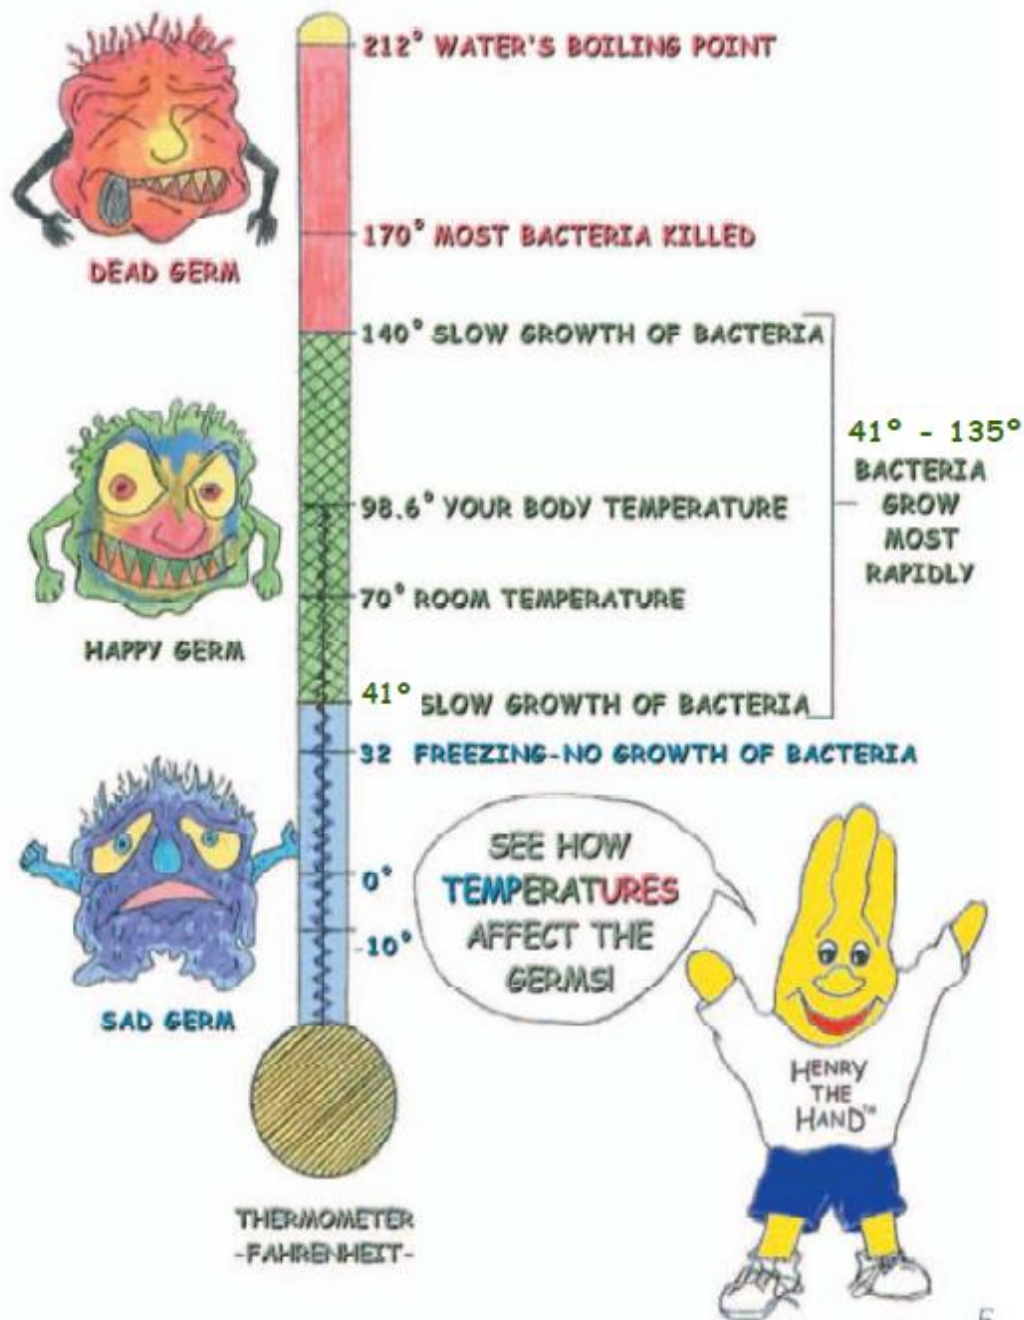 212° WATER'S BOILING POINT
170° MOST BACTERIA KILLED
DEAD GERM
140° SLOW GROWTH OF BACTERIA
41° - 135°
BACTERIA
GROW
MOST
RAPIDLY
98.6° YOUR BODY TEMPERATURE
70° ROOM TEMPERATURE
HAPPY GERM
41° SLOW GROWTH OF BACTERIA
32 FREEZING-NO GROWTH OF BACTERIA
0°
-10°
SAD GERM
SEE HOW
TEMPERATURES
AFFECT THE
GERMS!
HENRY
THE
HAND™
THERMOMETER
-FAHRENHEIT-